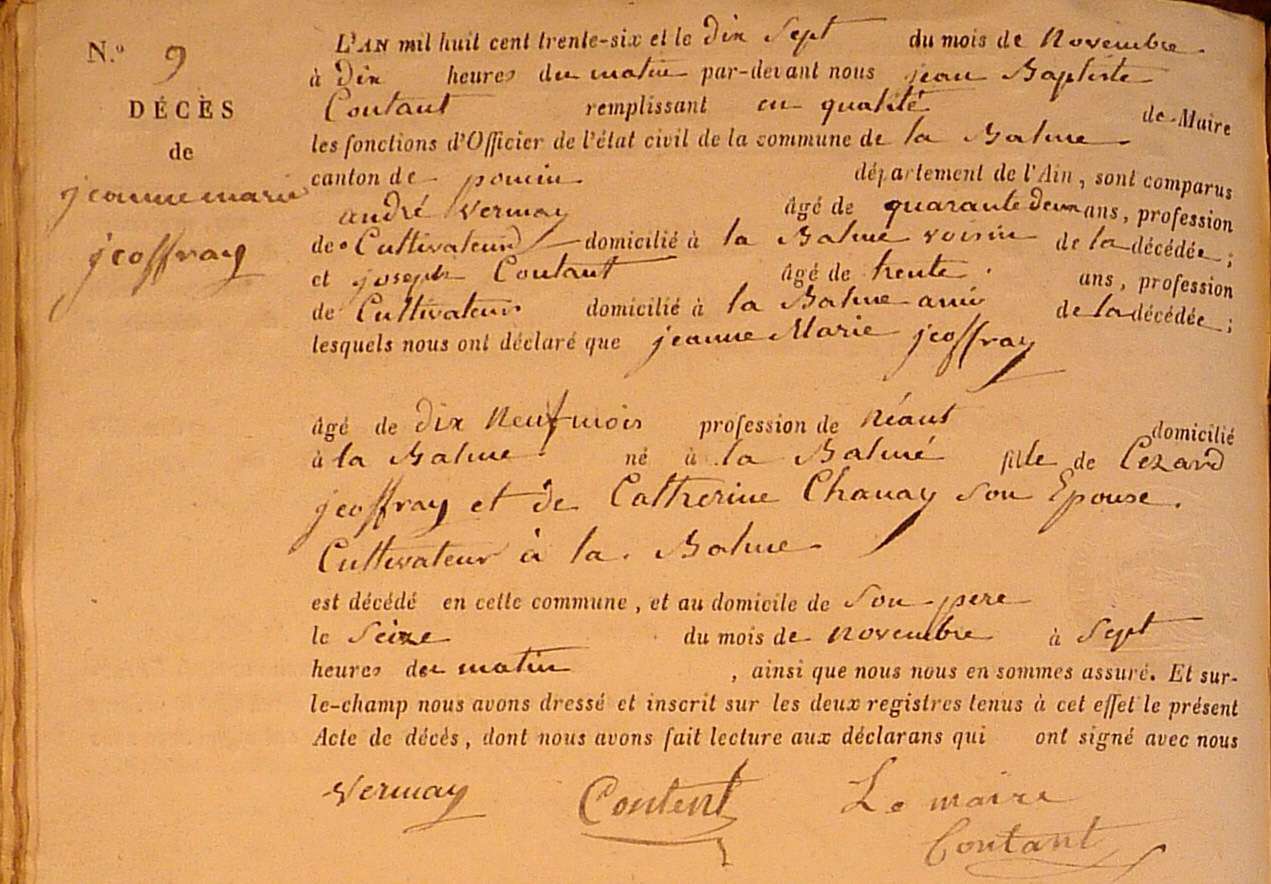 N.o 9
DÉCÈS
de
jeanne marie
jeoffray
L'AN mil huit cent trente-six et le dix sept du mois de novembre
à dix heures du matin par-devant nous jean Baptiste
Coutant remplissant en qualité de Maire
les fonctions d'Officier de l'état civil de la commune de la Balme
canton de poncin département de l'Ain, sont comparus
andré Vermay âgé de quarante deux ans, profession
de Cultivateur domicilié à la Balme voisin de la décédée;
et joseph Coutant âgé de trente ans, profession
de Cultivateur domicilié à la Balme ami de la décédée;
lesquels nous ont déclaré que jeanne Marie jeoffray
âgé de dix neuf mois profession de néant domicilié
à la Balme né à la Balme fille de Cezard
jeoffray et de Catherine Chanay son Epouse.
Cultivateur à la Balme
est décédé en cette commune, et au domicile de son pere
le seize du mois de novembre à sept
heures du matin, ainsi que nous nous en sommes assuré. Et sur-
le-champ nous avons dressé et inscrit sur les deux registres tenus à cet effet le présent
Acte de décès, dont nous avons fait lecture aux déclarans qui ont signé avec nous
Vermay Coutent Le maire
Coutant